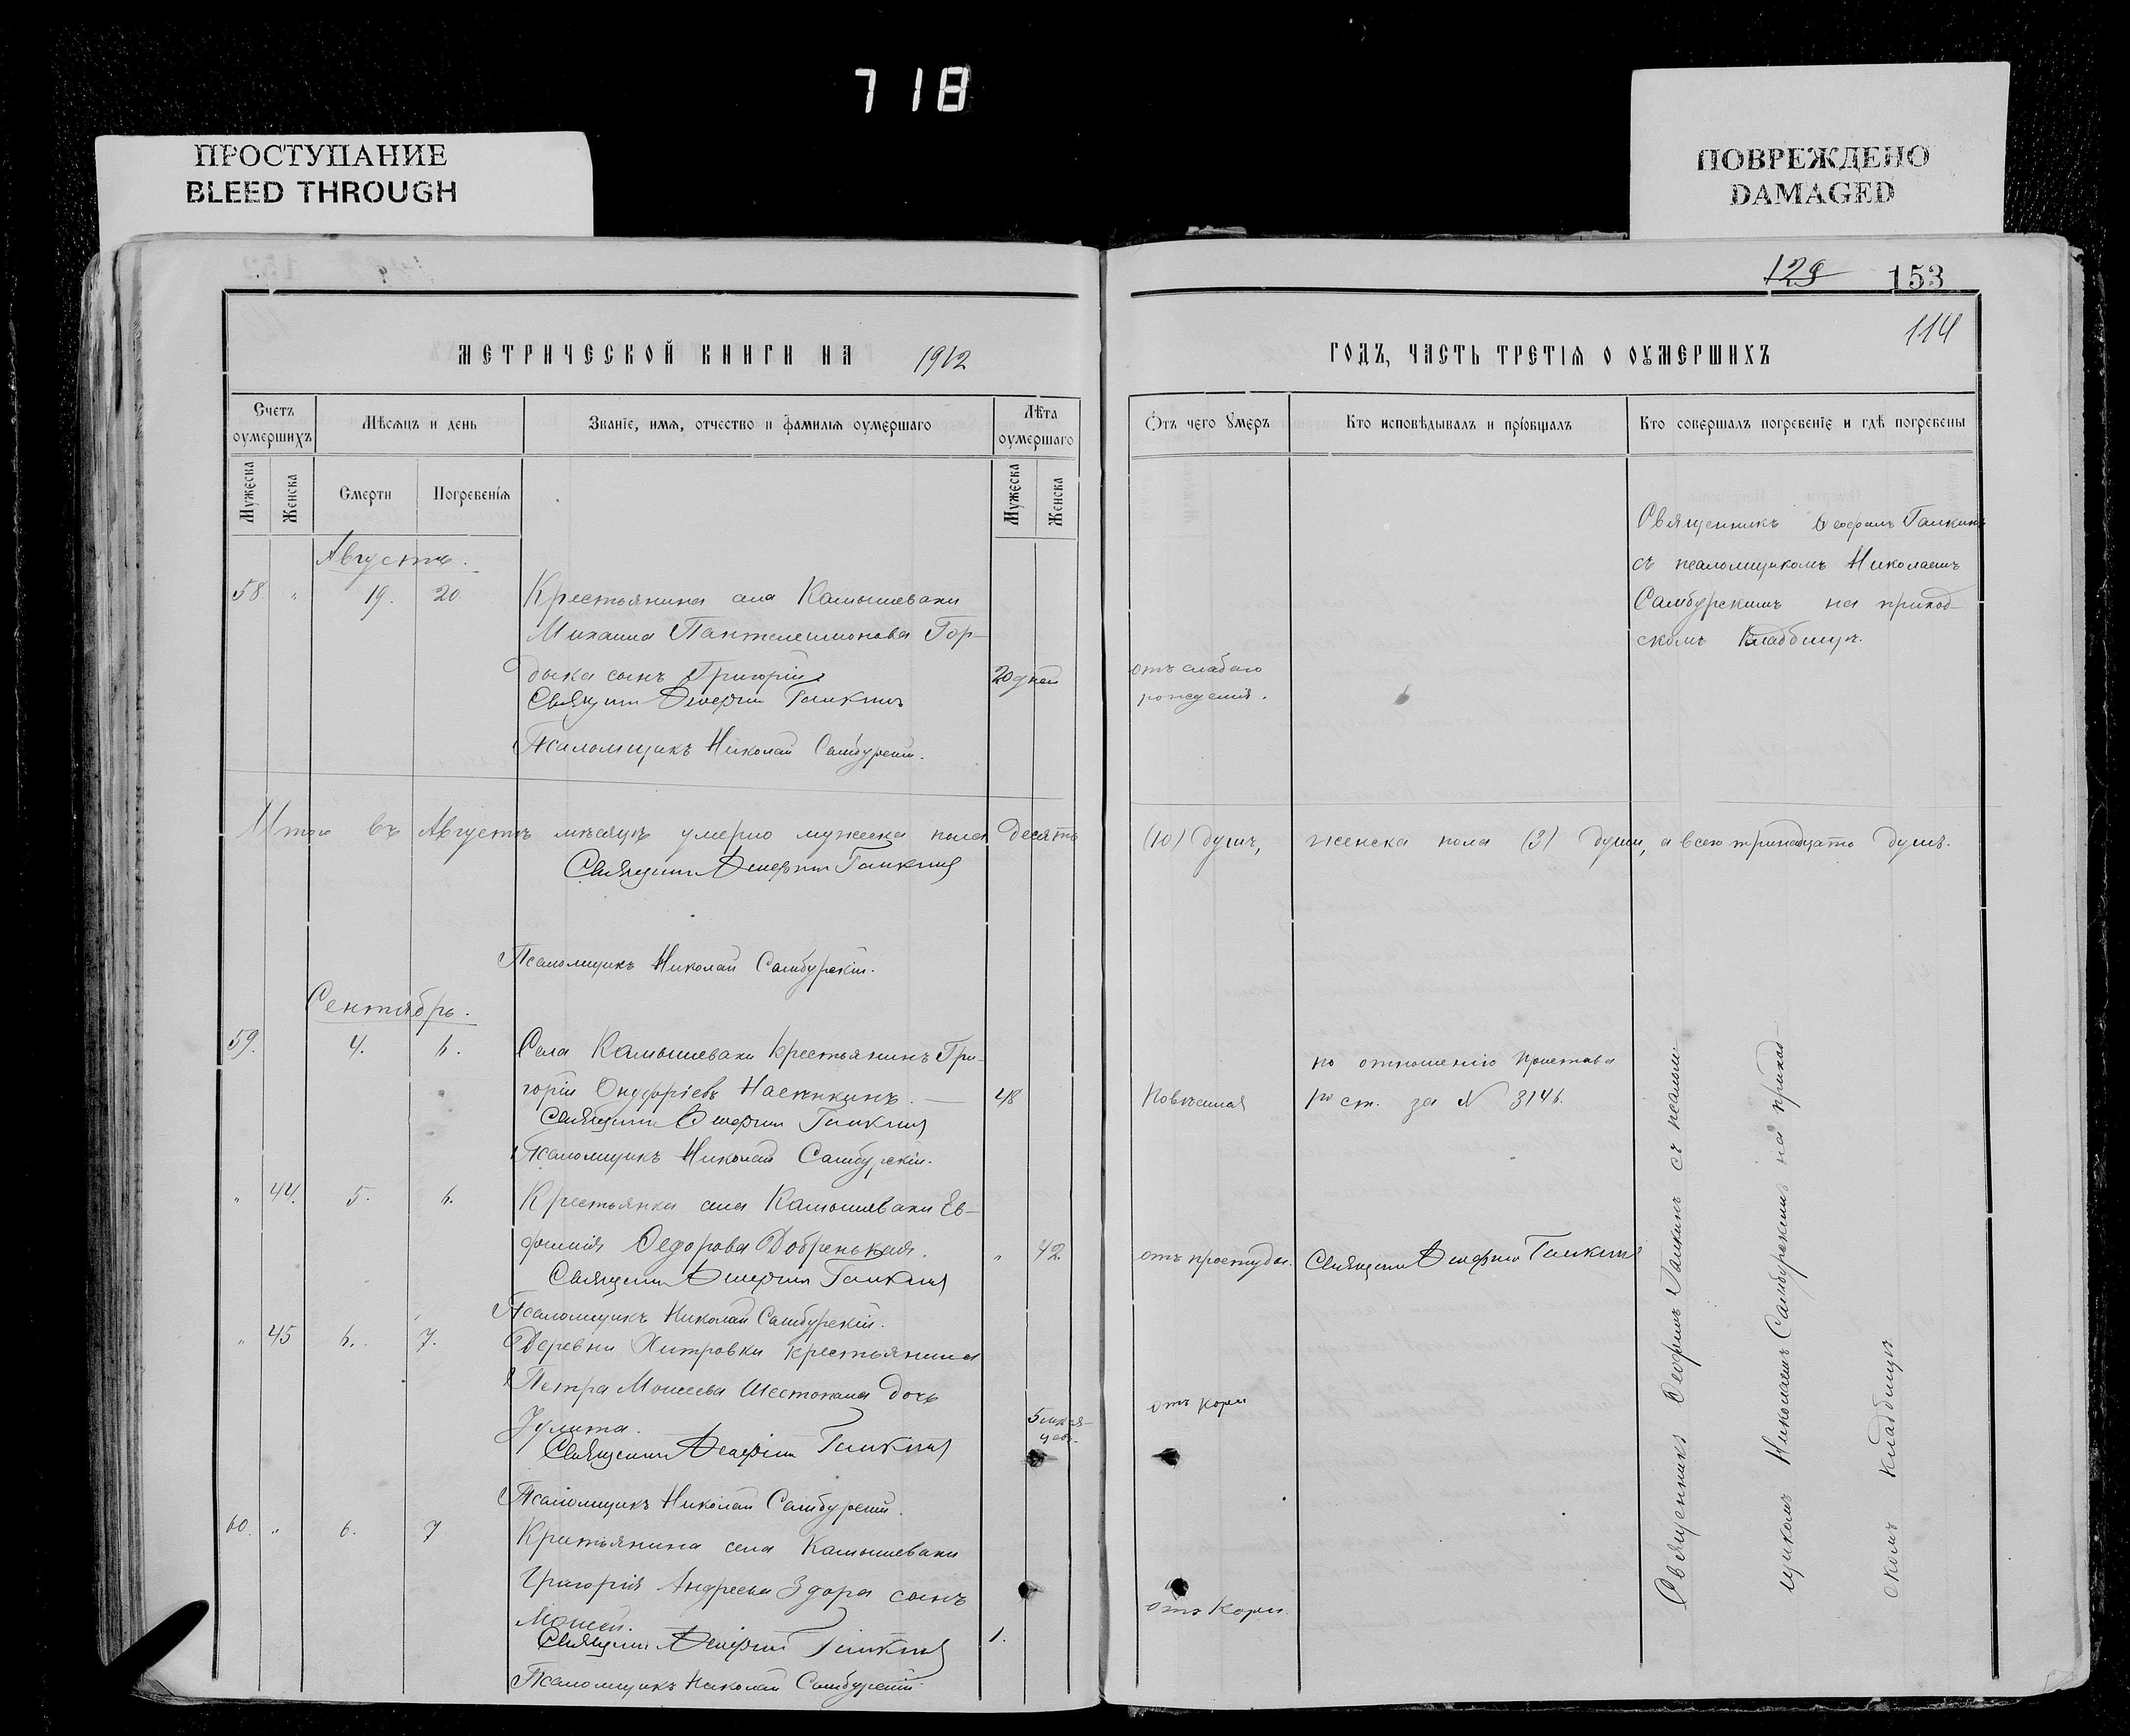 718
ПРОСТУПАНИЕ
BLEED THROUGH
ПОВРЕЖДЕНО
DAMAGED
129 153
114
МЕТРИЧЕСКОЙ КНИГИ НА 1912
ГОДЪ, ЧАСТЬ ТРЕТІЯ О ОУМЕРШИХЪ
Счетъ оумершихъ
Мѣсяцъ и день
Званіе, имя, отчество и фамилія оумершаго
Лѣта оумершаго
Мужеска
Женска
Смерти
Погребенія
Мужеска
Женска
Отъ чего умеръ
Кто исповѣдывалъ и пріобщалъ
Кто совершалъ погребеніе и гдѣ погребены
Августъ.
58. " 19. 20. Крестьянина села Камышевахи
Михаила Пантелеимонова Гор-
дыка сынъ Григорій
20 дней
отъ слабаго
рожденія.
Священникъ Ѳеофилъ Галкинъ
съ псаломщикомъ Николаемъ
Самбурскимъ на приход-
скомъ кладбищѣ.
Священникъ Ѳеофилъ Галкинъ
Псаломщикъ Николай Самбурскій.
Итого въ Августѣ мѣсяцѣ умерло мужеска пола десять (10) душъ, женска пола (3) души, а всего тринадцать душъ.
Священникъ Ѳеофилъ Галкинъ
Псаломщикъ Николай Самбурскій.
Сентябрь.
59. 4. 6. Села Камышевахи крестьянинъ Гри-
горій Онуфріевъ
48
Повѣсился
по отношенію Пристава
ст. за № 3146.
Священникъ Ѳеофилъ Галкинъ
Псаломщикъ Николай Самбурскій.
" 44. 5. 6. Крестьянка села Камышевахи Ев-
фимія Ѳедорова Добренькая.
" 42.
отъ простуды.
Священникъ Ѳеофилъ Галкинъ
Священникъ Ѳеофилъ Галкинъ
Псаломщикъ Николай Самбурскій.
" 45 6. 7. Деревни Хитровки крестьянина
Петра Моисеева Шестопала дочь
Іулита.
5 мѣся-
цев.
отъ кори
Священникъ Ѳеофилъ Галкинъ
Псаломщикъ Николай Самбурскій.
60. " 6. 7 Крестьянина села Камышевахи
Григорія Андреева Здора сынъ
Моисей.
1.
отъ кори.
Священникъ Ѳеофилъ Галкинъ
Псаломщикъ Николай Самбурскій
Священникъ Ѳеофилъ Галкинъ съ псалом-
щикомъ Николаемъ Самбурскимъ на приход-
скомъ кладбищѣ